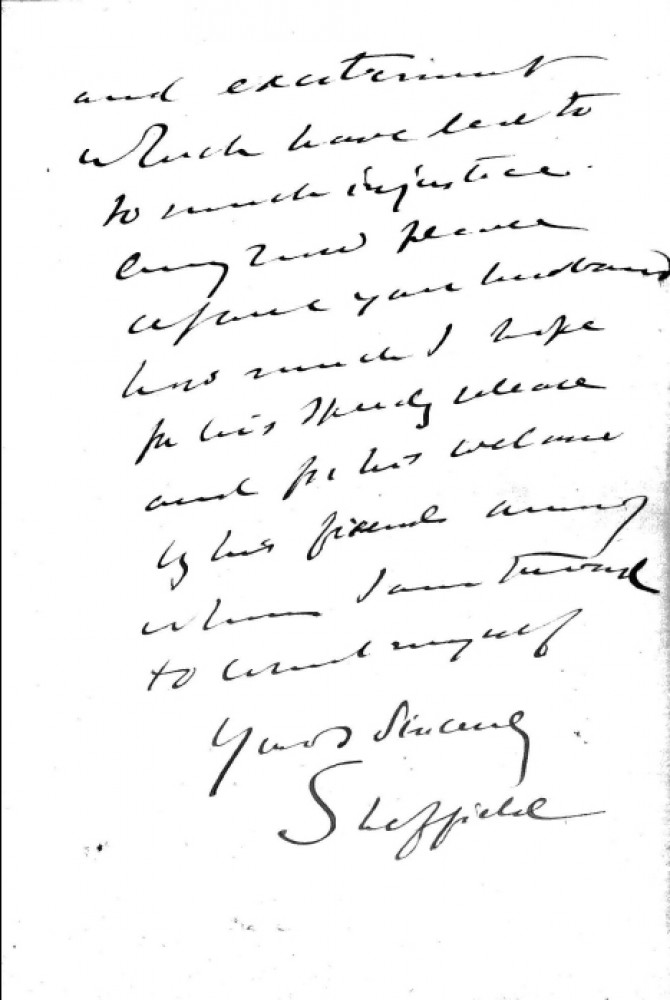 and excitement
which have led to
to much injustice.
please
assure your husband
how much I hope
for his speedy release
and for his welcome
by his friends among
whom I am proud
to count myself
Yours Sincerely
Sheffield